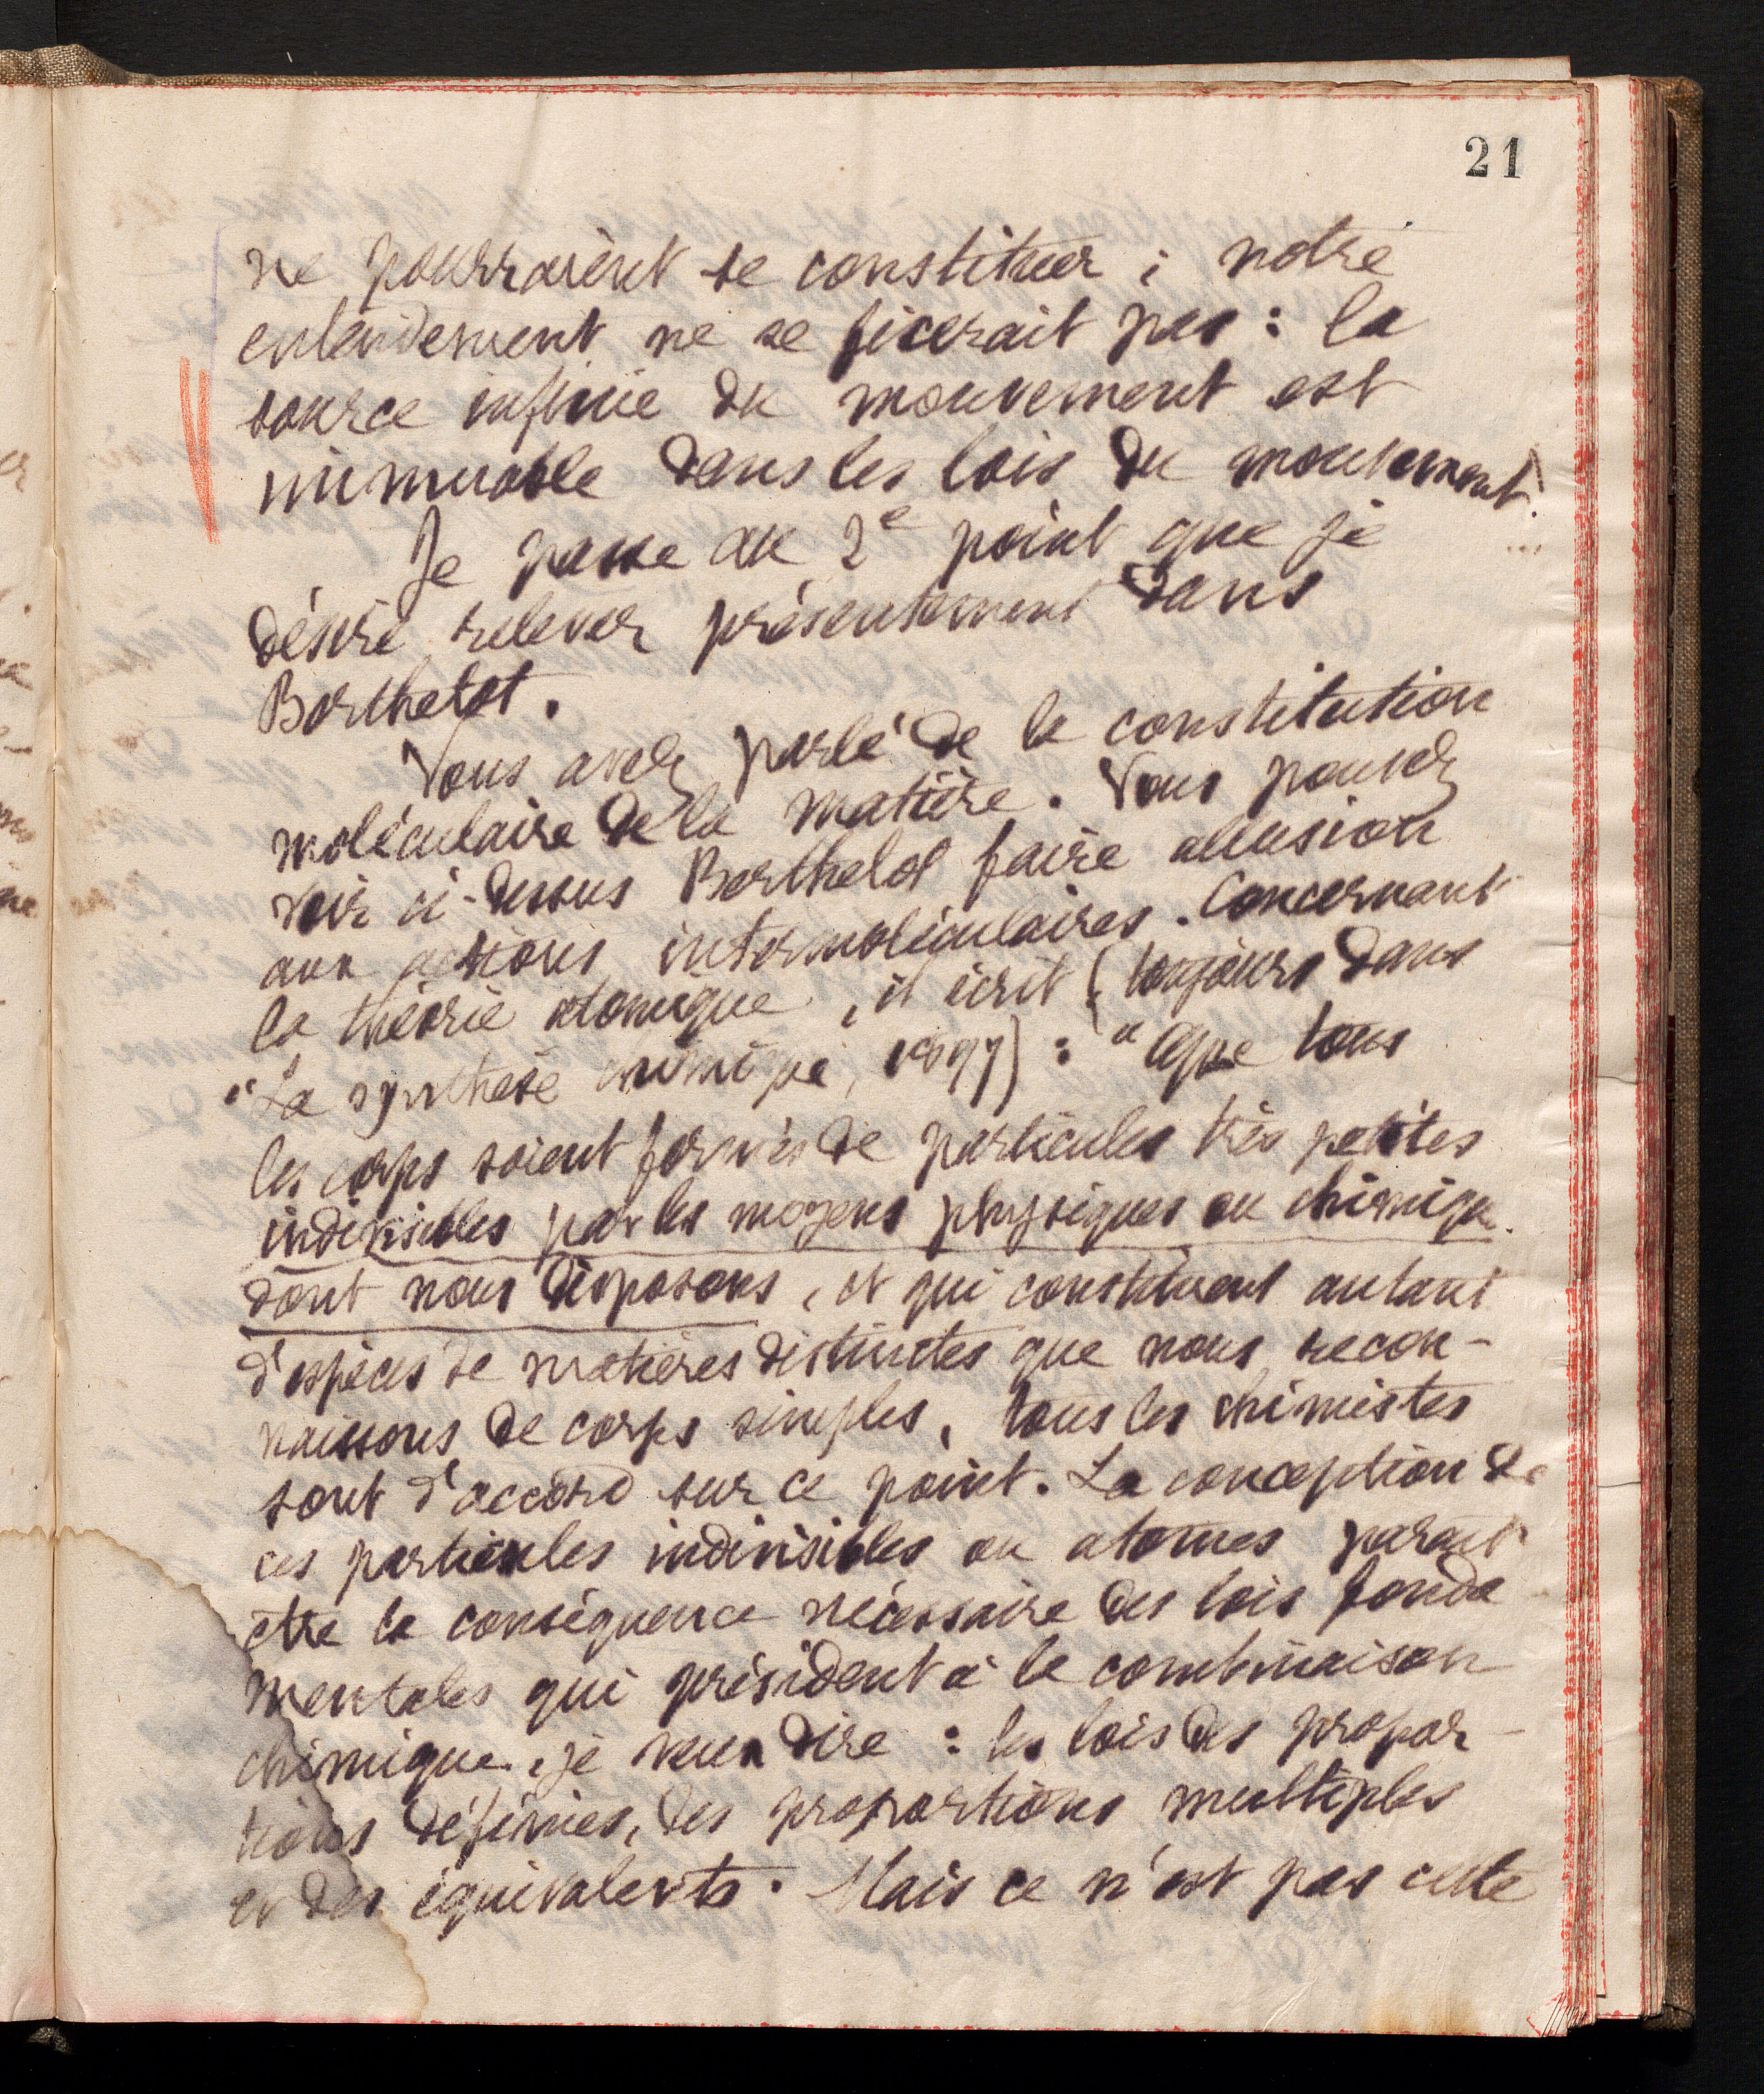 21
ne pourraient se constituer ; notre
entendement ne se ficerait pas : la
source infinie du mouvement est
immuable dans les lois du mouvement.
Je passe au 2e point que je
désire relever présentement dans
Berthelot.
Vous avez parlé de la constitution
moléculaire de la matière. Vous pouvez
voir ci-dessus Berthelot faire allusion
aux actions intermoléculaires. Concernant
la théorie atomique, il écrit (toujours dans
"La synthèse chimique, 1897) : "Que tous
les corps soient formés de particules très petites
indivisibles par les moyens physiques ou chimiqu.
dont nous disposons, et qui constituent autant
d'espèces de matières distinctes que nous recon-
naissons de corps simples, tous les chimistes
sont d'accord sur ce point. La conception de
ces particules indivisibles ou atomes paraît
être la conséquence nécessaire des lois fonda
mentales qui président à la combinaison
chimique, je veux dire : les lois des propor-
tions définies, des proportions multiples
et des équivalents. Mais ce n'est pas cette